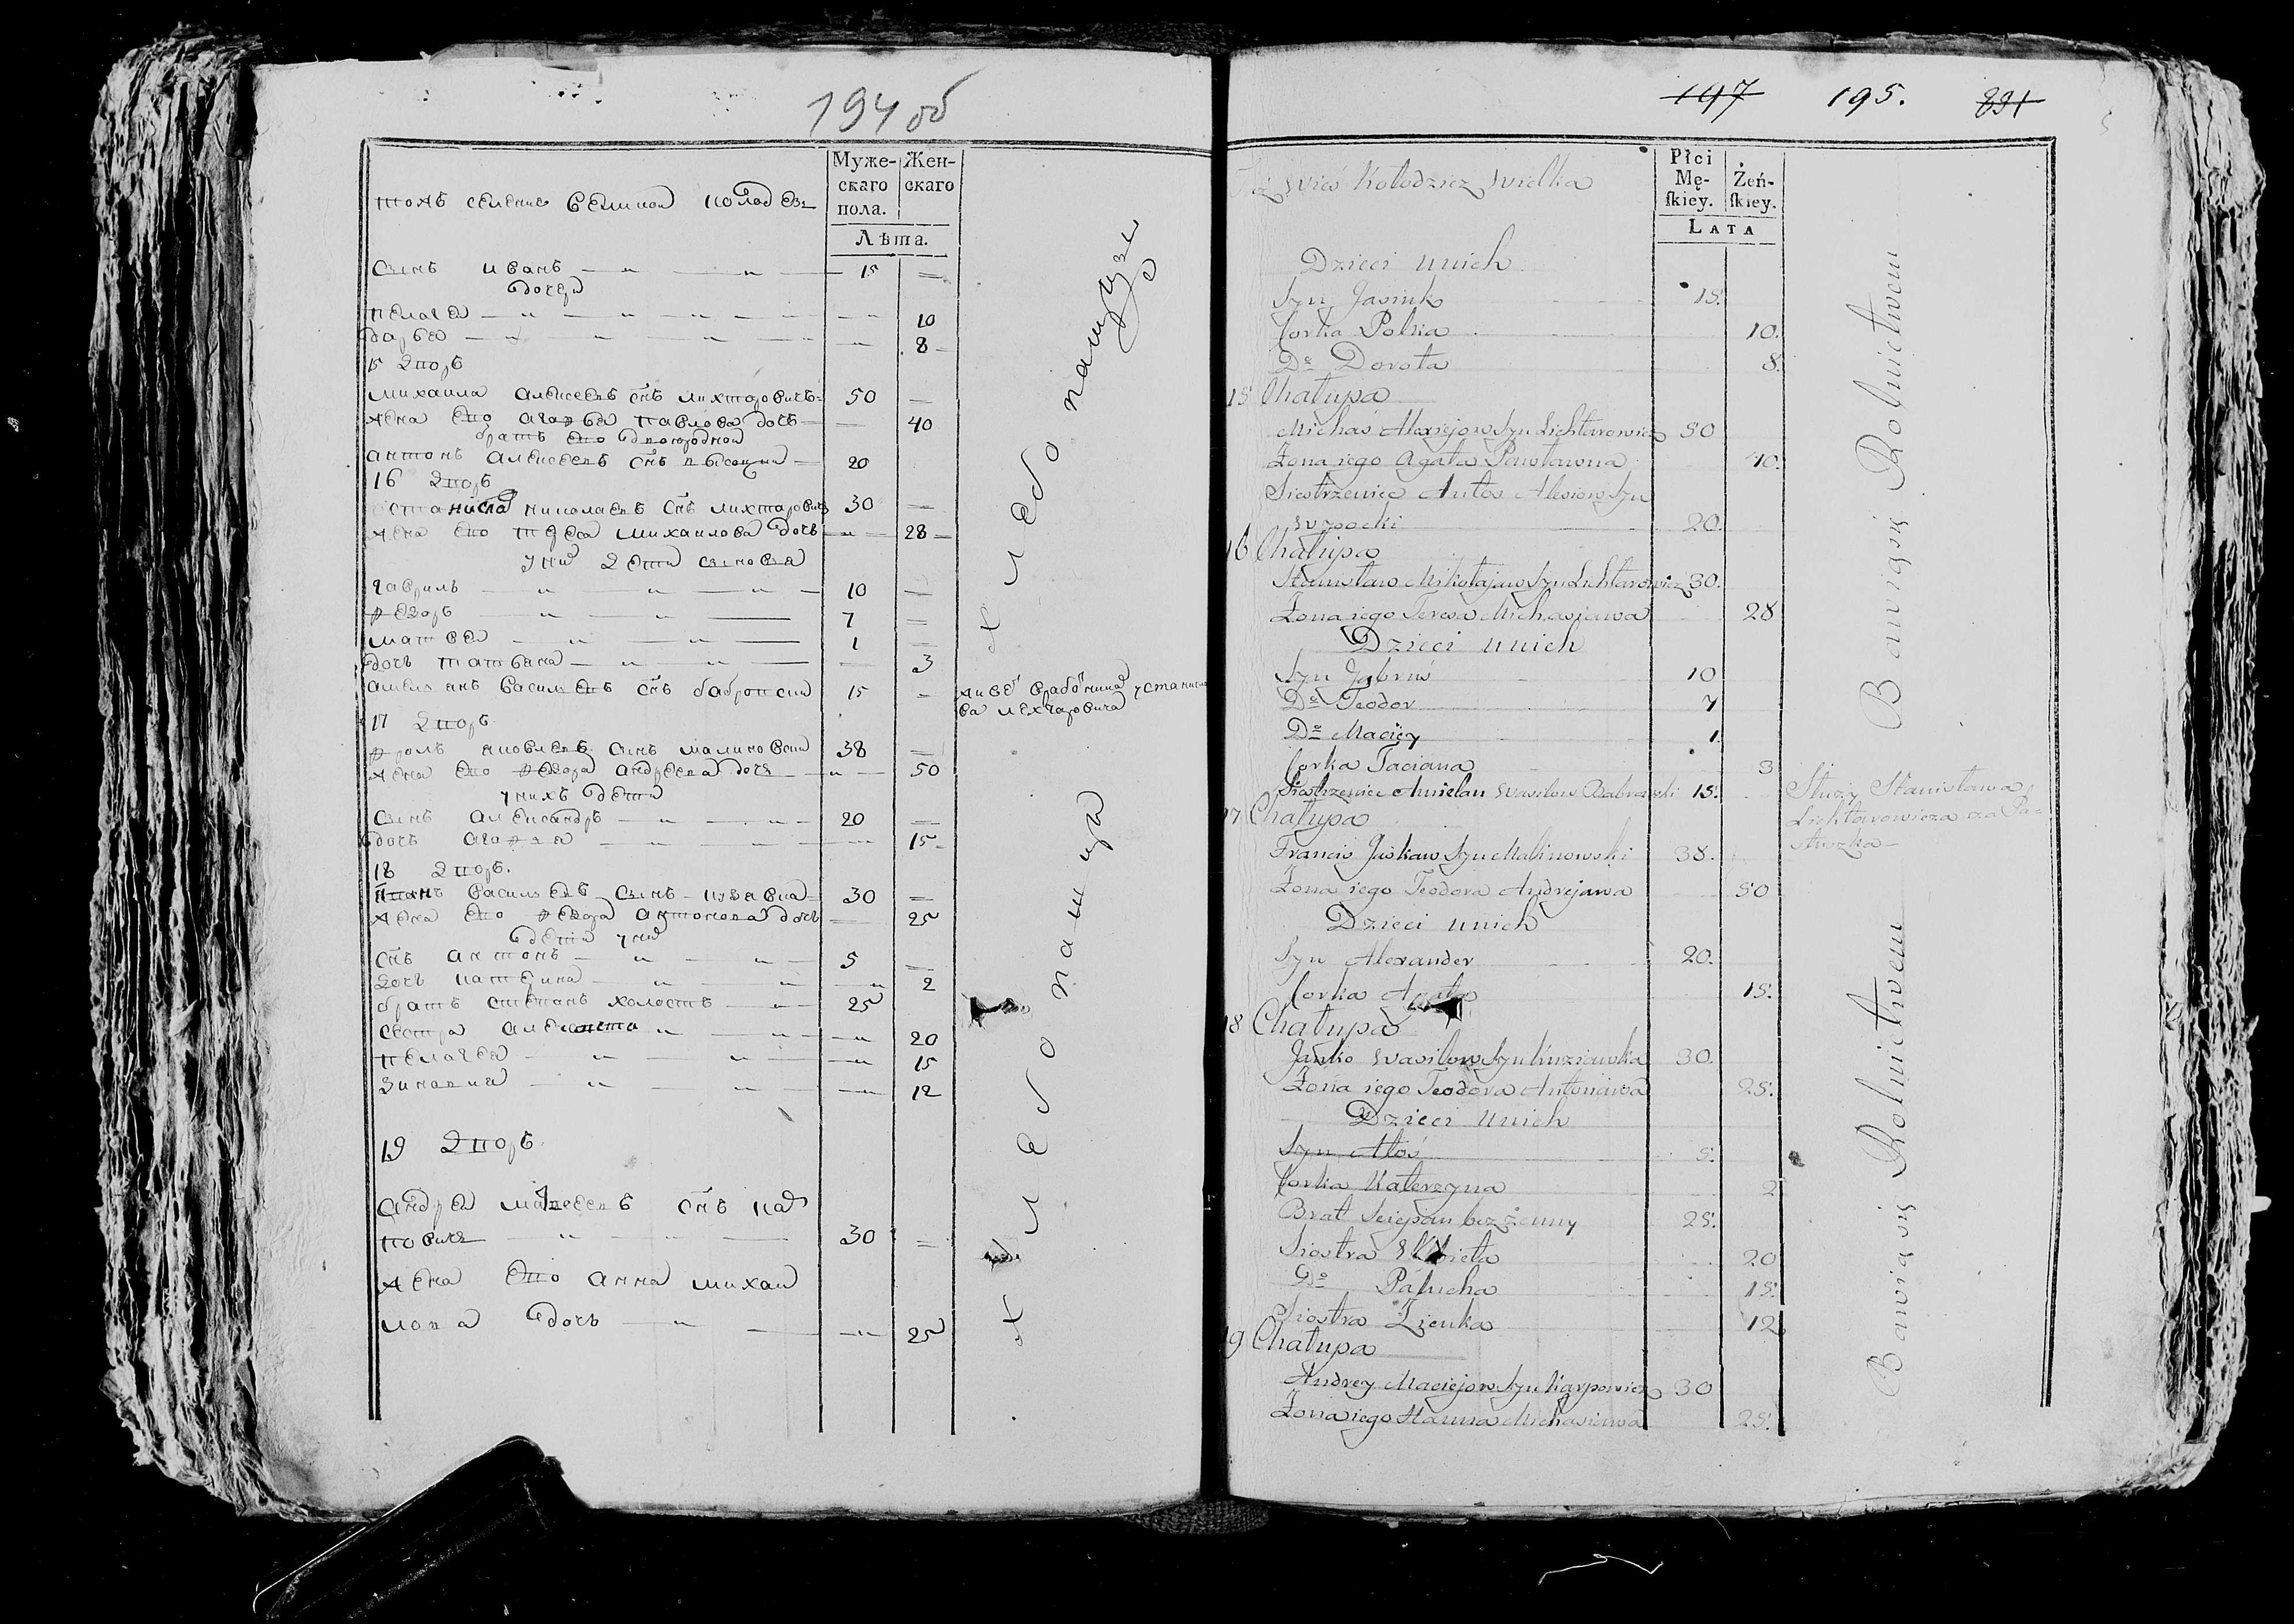 194 об
Муже-
скаго
пола.
Жен-
скаго
Лѣта.
тожъ селение великой колодезь
сынъ иванъ — 15 —
дочери
пелагея — 10
дарья — 8
15 дворъ
михаила алексеевъ снъ лихтаровичъ 50 —
жена его агафья павлова дочь — 40
братъ его двоюродной
антонъ алексеевъ снъ высоцки — 20
16 дворъ
станислав николаевъ снъ лихтарович 30 —
жена его тереса михаилова дочь — 28
у них дети сыновья
гаврилъ — 10 —
федоръ — 7 —
матвей — 1 —
дочь татьяна — 3
амельянъ васильевъ снъ бабровски 15 —
живё в работниках у станисла
ва лехтаровича
17 дворъ
фролъ яковлевъ сынъ малиновски 38 —
жена его федора андреева дочь — 50
у нихъ дети
сынъ александръ — 20 —
дочь агафья — 15
18 дворъ.
иванъ васильевъ сынъ кузевка 30 —
жена его федора антонова дочь — 25
дети у них
снъ антонъ — 5 —
дочь катерина — 2
братъ степанъ холостъ — 25
сестра — 20
пелагея — 15
зиновия — 12
19 дворъ
андрей матвеевъ снъ кар
повичъ — 30 —
жена его анна михаи
лова дочь — 25
хлебопашцы
хлебопашцы
197 195. 831
Płci
Mę-
ſkiey.
Żeń-
ſkiey.
LATA
Taż Wieś Kołodziez Wielka
Dzieci unich
Syn Jasiuk 15.
Corka Polka 10.
Do Dorota 8.
15 Chałupa
Michaś Alexiejow Syn Lichtarowicz 50
Żona iego Agata Pawłowna 40.
Siestrzeniec Antoś Alexiow Syn
Wysocki 20.
16 Chałupa
Stanisław Mikołajow Syn Lichtarowicz 30.
Żona iego Teresa Michasiowa 28
Dzieci unich
Syn Gabruś 10
Do Teodor 7
Do Maciey 1
Corka Taciana 3
Siestrzeniec Amielan Wasilow Babrowski 15.
Służy Stanisława
Lichtarowicza za Pa-
stuszka
17 Chałupa
Francis Juskow Syn Malinowski 38.
Żona iego Teodora Andrejowa 50
Dzieci unich
Syn Alexander 20.
Corka Agata 15.
18 Chałupa
Janko Wasilow Syn Kuziewka 30.
Żona iego Teodora Antonowa 25.
Dzieci unich
Syn Atoś 5.
Corka Katerzyna 2
Brat Sciepan bezżenny 25.
Siostra Elżbieta 20
Do Palucha 15.
Siostra Zienka 12
19 Chałupa
Andrey Maciejow Syn Karpowicz 30
Żona iego Hanna Michasiowa 25.
Bawią się Rolnictwem
Bawią się Rolnictwem